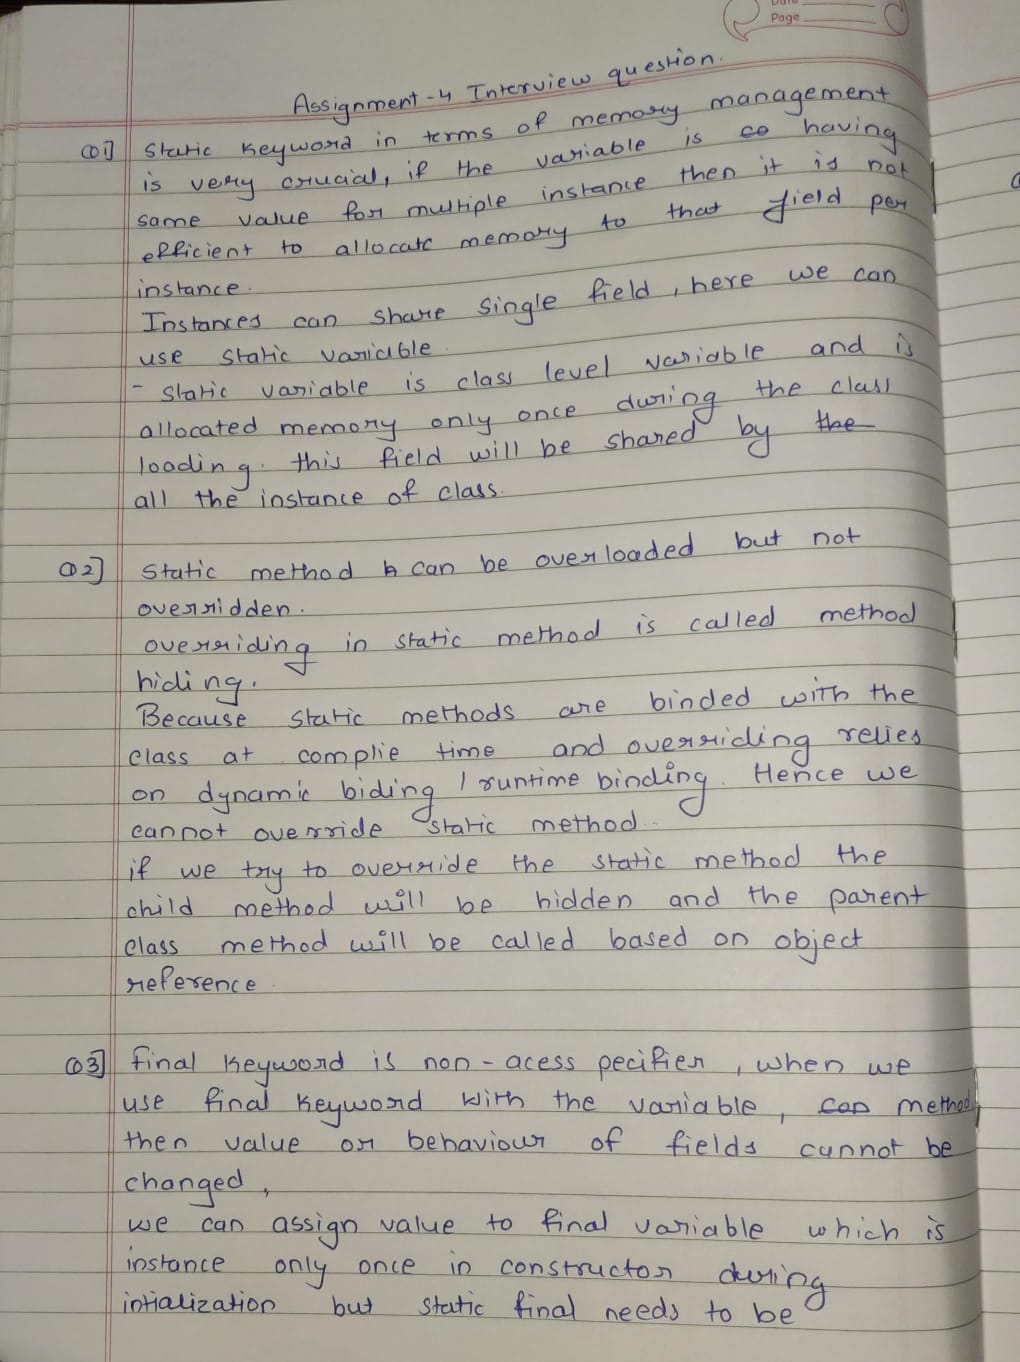 Date
Page
Assignment-4 Interview question.
Q1] static keyword in terms of memory management
is very crucial, if the variable is co having
same value for multiple instance then it is not
efficient to allocate memory to that field per
instance.
Instances can share single field, here we can
use static variable.
- static variable is class level variable and is
allocated memory only once during the class
loading. this field will be shared by the
all the instance of class.
Q2] static method b can be overloaded but not
overridden.
overriding in static method is called method
hiding.
Because static methods are binded with the
class at complie time and overriding relies
on dynamic biding / runtime binding. Hence we
cannot override static method.
if we try to override the static method the
child method will be hidden and the parent
class method will be called based on object
reference.
Q3] final keyword is non-acess pecifier, when we
use final keyword with the variable, can method
then value or behaviour of fields cannot be
changed,
we can assign value to final variable which is
instance only once in constructor during
intialization but static final needs to be